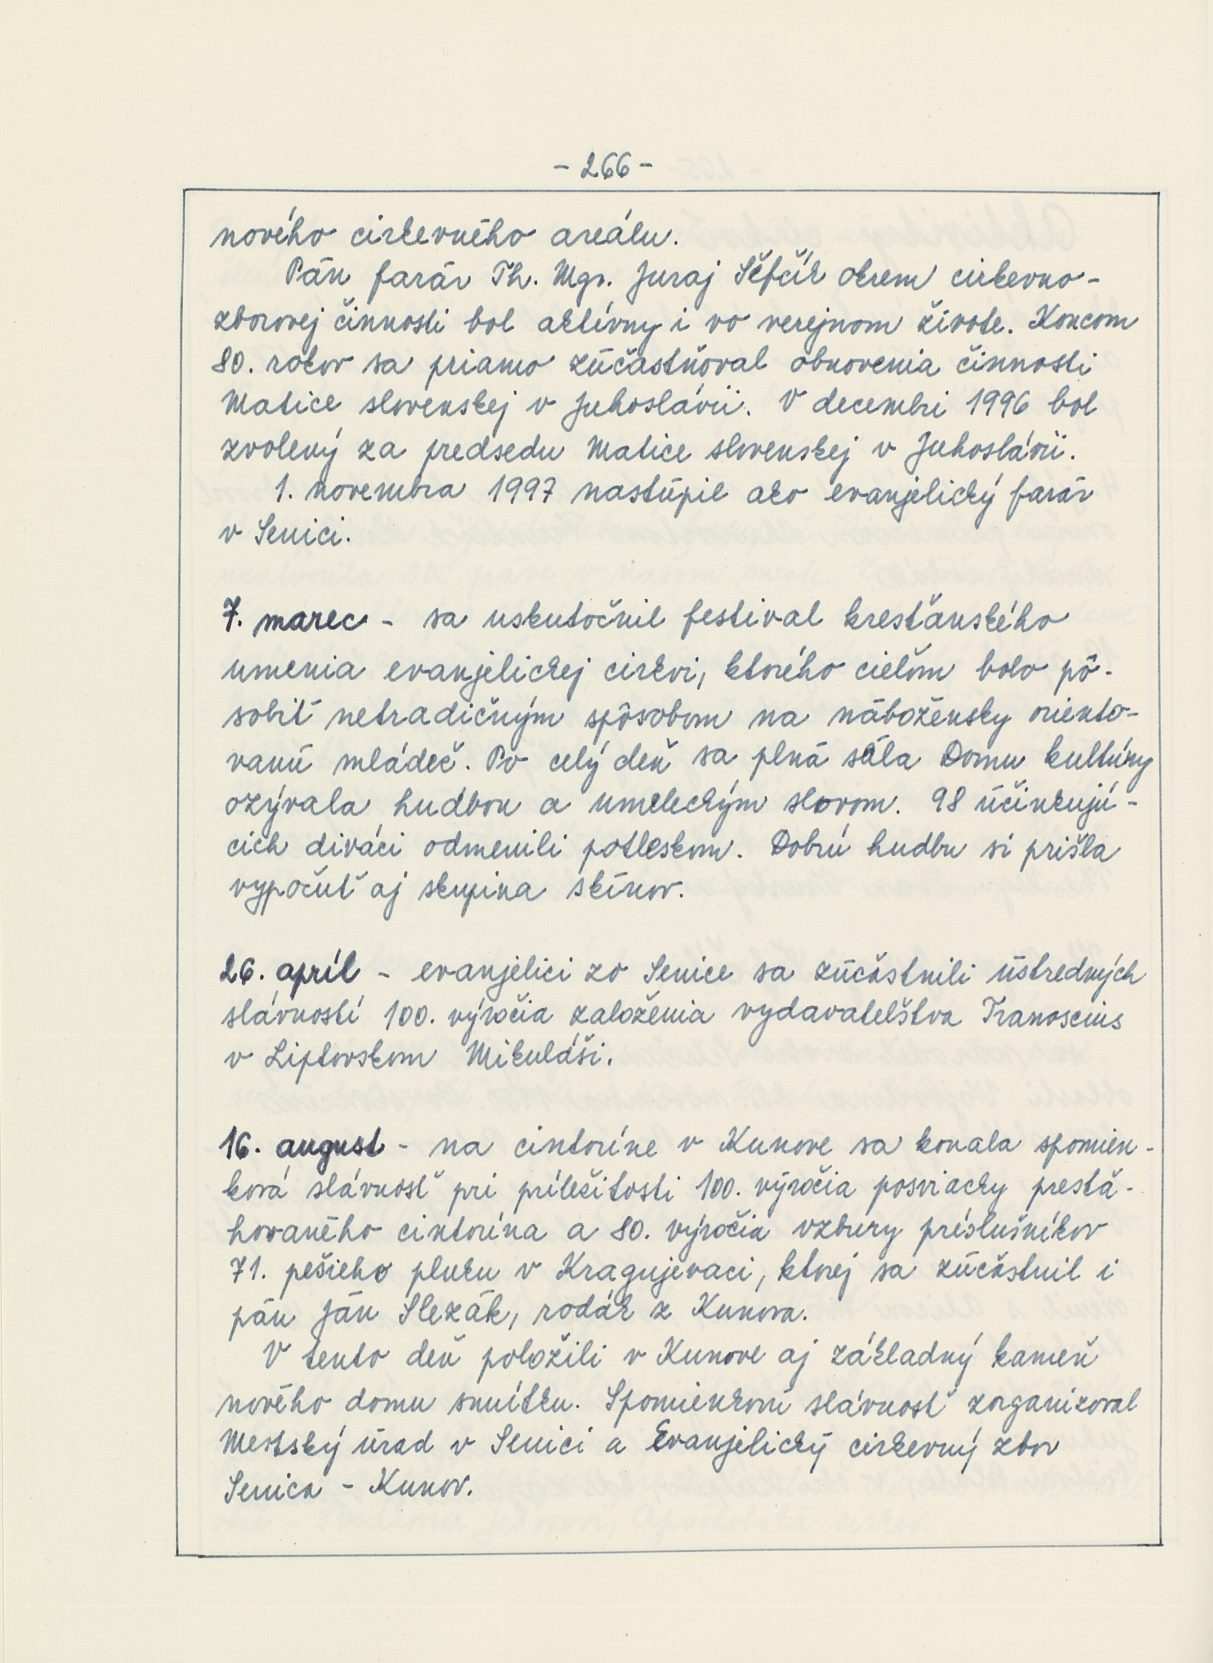 - 266 -
nového cirkevného areálu.
Pán farár Th. Mgr. Juraj Šefčík okrem cirkevno-
zborovej činnosti bol aktívny i vo verejnom živote. Koncom
80. rokov sa priamo zúčastňoval obnovenia činnosti
Matice slovenskej v Juhoslávii. V decembri 1996 bol
zvolený za predsedu Matice slovenskej v Juhoslávii.
1. novembra 1997 nastúpil ako evanjelický farár
v Senici.
7. marec - sa uskutočnil festival kresťanského
umenia evanjelickej cirkvi, ktorého cieľom bolo pô-
sobiť netradičným spôsobom na nábožensky oriento-
vanú mládež. Po celý deň sa plná sála Domu kultúry
ozývala hudbou a umeleckým slovom. 98 účinkujú-
cich diváci odmenili potleskom. Dobrú hudbu si prišla
vypočuť aj skupina skínov.
26. apríl - evanjelici zo Senice sa zúčastnili ústredných
slávností 100. výročia založenia vydavateľstva Tranoscius
v Liptovskom Mikuláši.
16. august - na cintoríne v Kunove sa konala spomien-
ková slávnosť pri príležitosti 100. výročia posviacky presťa-
hovaného cintorína a 80. výročia vzbury príslušníkov
71. pešieho pluku v Kragujevaci, ktorej sa zúčastnil i
pán Ján Slezák, rodák z Kunova.
V tento deň položili v Kunove aj základný kameň
nového domu smútku. Spomienkovú slávnosť zorganizoval
Mestský úrad v Senici a Evanjelický cirkevný zbor
Senica - Kunov.